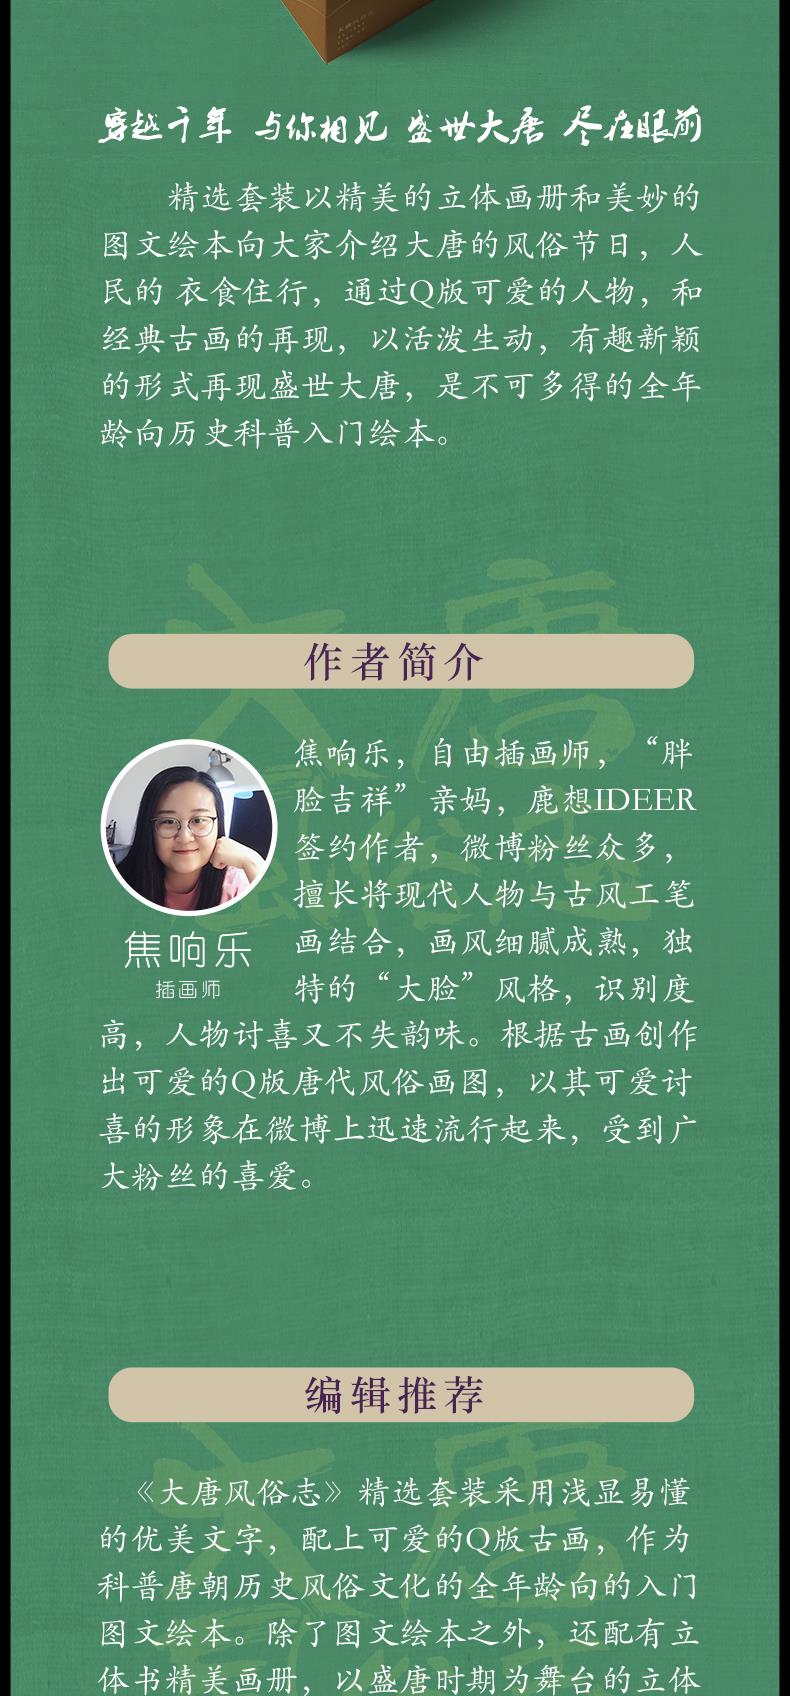 穿越千年 与你相见 盛世大唐 尽在眼前
精选套装以精美的立体画册和美妙的
图文绘本向大家介绍大唐的风俗节日，人
民的 衣食住行，通过Q版可爱的人物，和
经典古画的再现，以活泼生动，有趣新颖
的形式再现盛世大唐，是不可多得的全年
龄向历史科普入门绘本。
作者简介
焦响乐，自由插画师，“胖
脸吉祥”亲妈，鹿想IDEER
签约作者，微博粉丝众多，
擅长将现代人物与古风工笔
画结合，画风细腻成熟，独
特的“大脸”风格，识别度
高，人物讨喜又不失韵味。根据古画创作
出可爱的Q版唐代风俗画图，以其可爱讨
喜的形象在微博上迅速流行起来，受到广
大粉丝的喜爱。
焦响乐
插画师
编辑推荐
《大唐风俗志》精选套装采用浅显易懂
的优美文字，配上可爱的Q版古画，作为
科普唐朝历史风俗文化的全年龄向的入门
图文绘本。除了图文绘本之外，还配有立
体书精美画册，以盛唐时期为舞台的立体